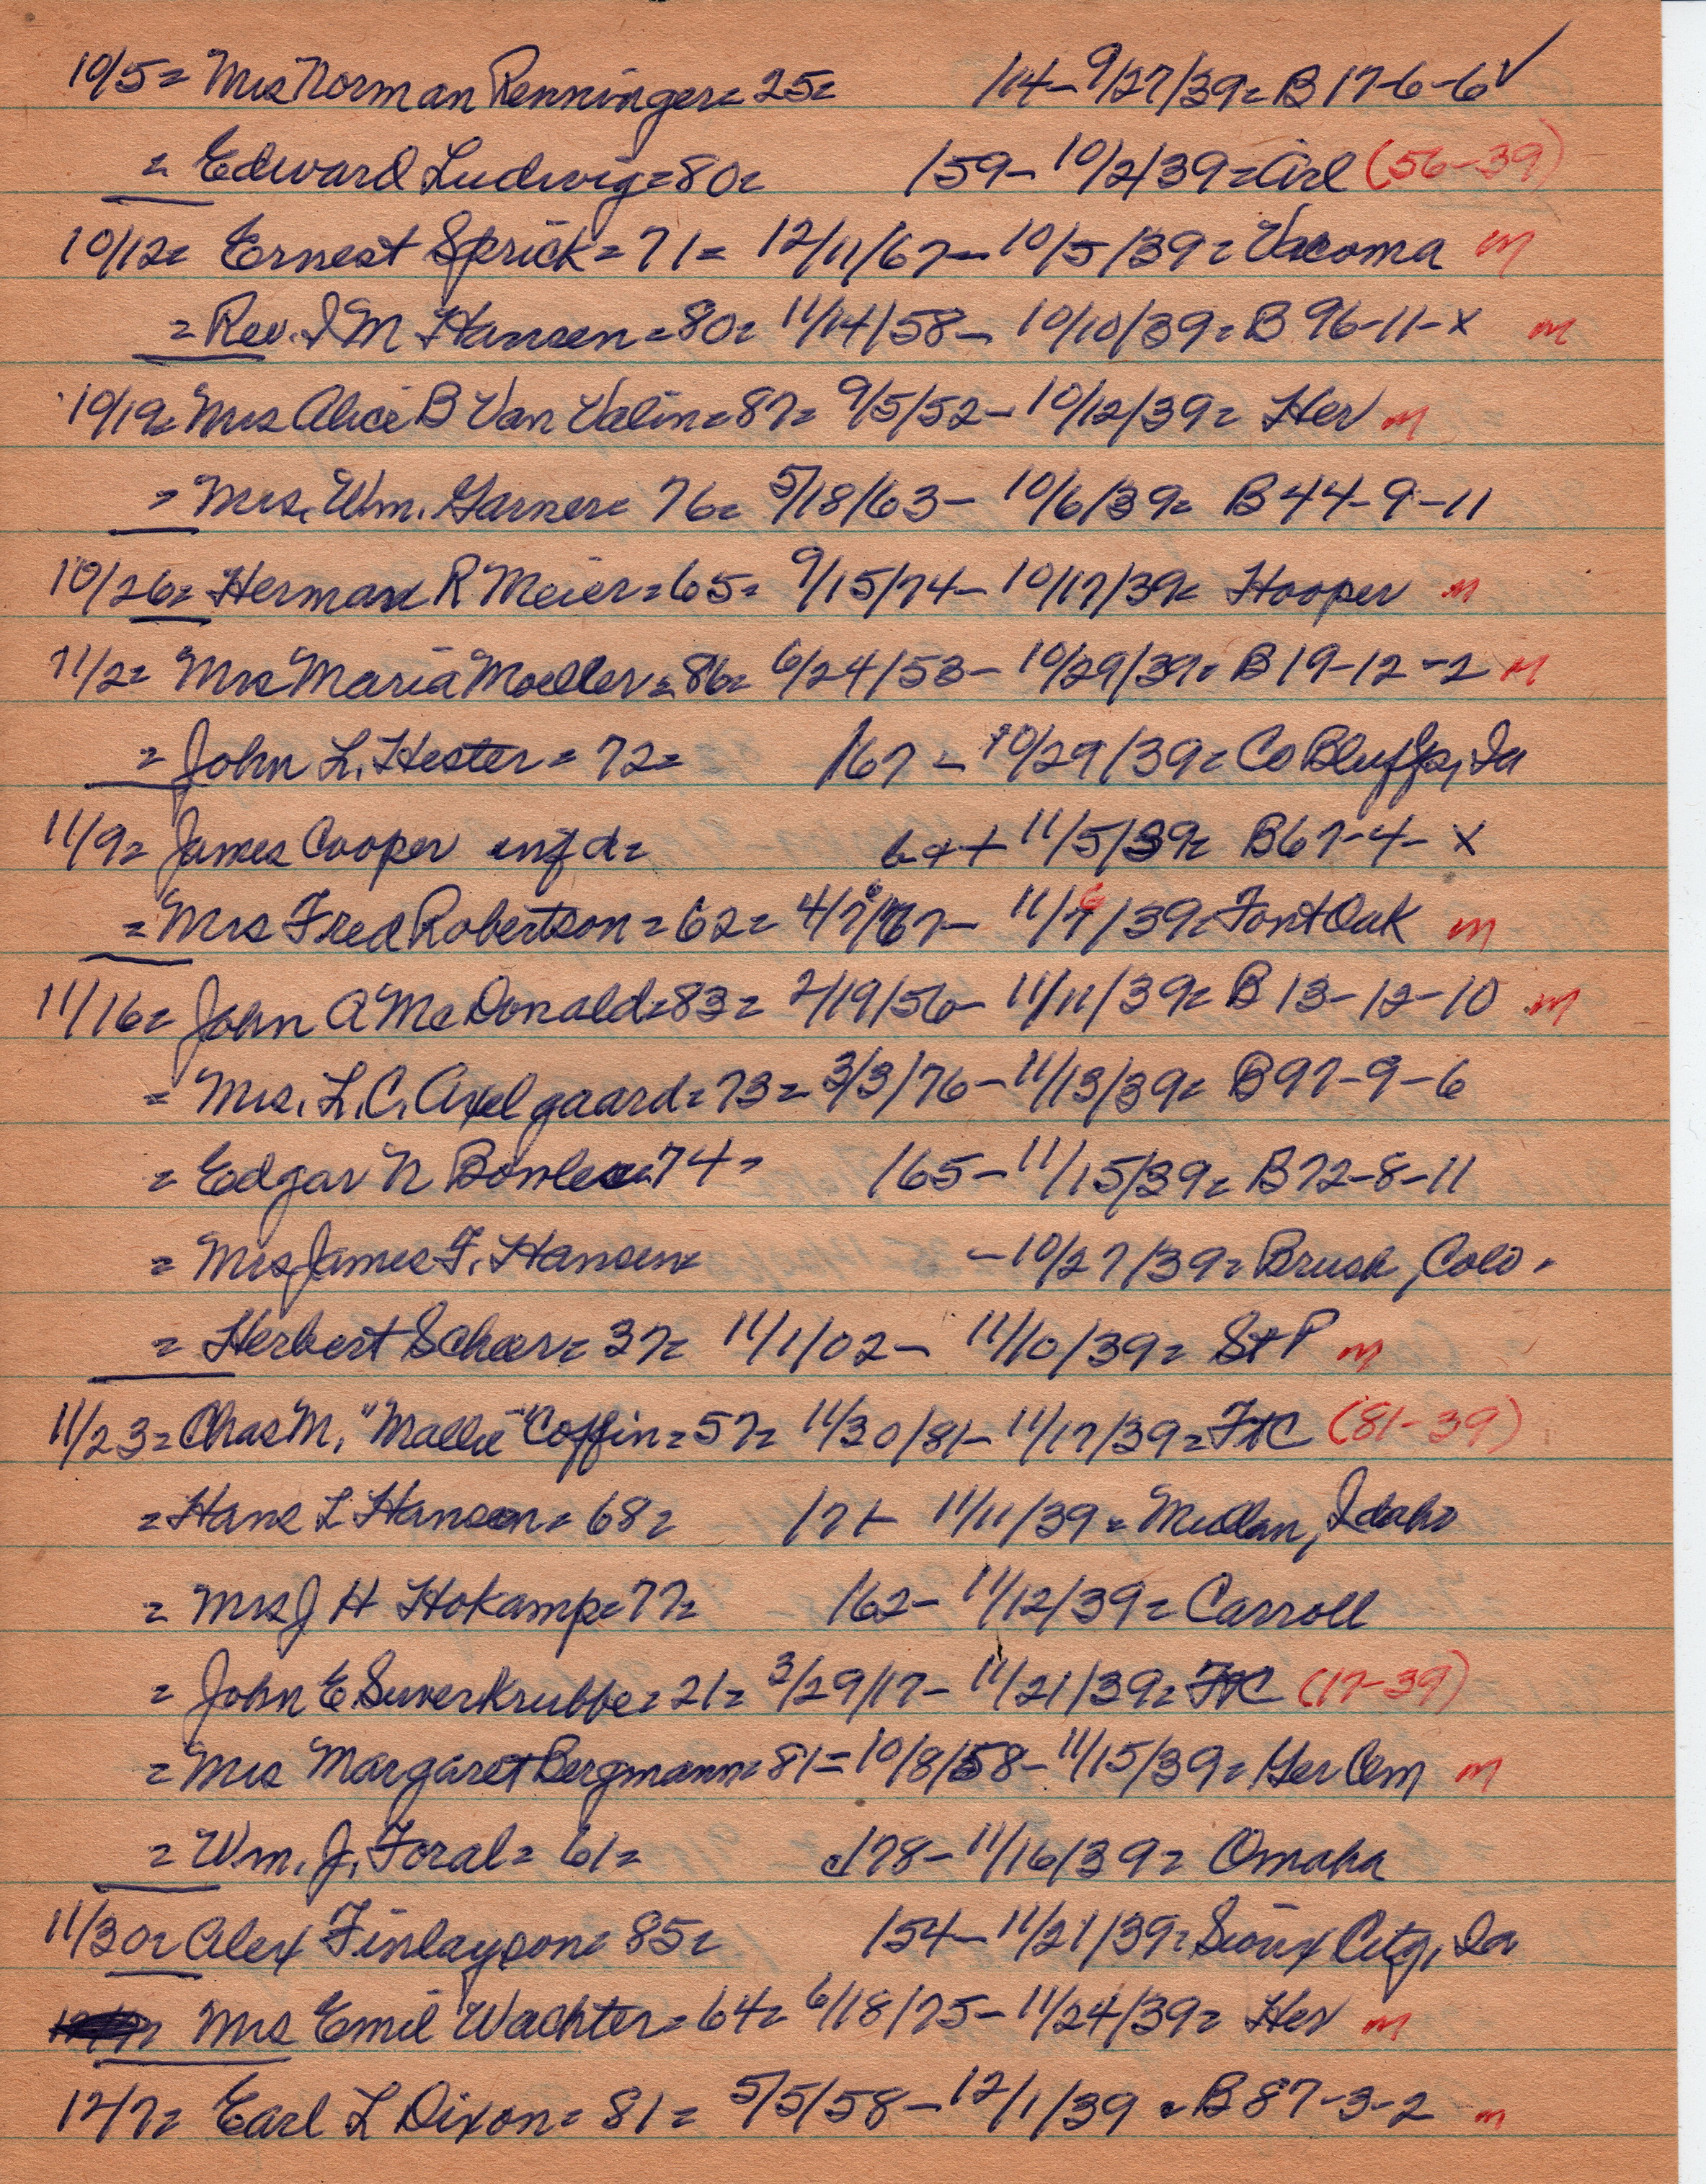 10/5= Mrs Norman Renninger= 25= /14- 9/27/39= B 17-6-6 ✓
= Edward Ludwig=80= /59- 10/2/39= Arl (56-39)
10/12= Ernest Sprick= 71= 12/11/67- 10/5/39= Vacoma m
= Rev. I M Hansen=80= 11/14/58- 10/10/39= B 96-11-X m
10/19= Mrs Alice B Van Valin=87= 9/5/52- 10/12/39= Her m
= Mrs. Wm. Garner= 76= 5/18/63- 10/6/39= B 44-9-11
10/26= Herman R Meier=65= 9/15/74- 10/17/39= Hooper m
11/2= Mrs Maria Moeller=86= 6/24/53- 10/29/39= B 19-12-2 m
= John L. Hester= 72= /67 - 10/29/39= Co Bluffs, Ia
11/9= James Cooper inf d= b & + 11/5/39= B67-4-X
= Mrs Fred Robertson=62= 4/7/67- 11/6/39= Font Oak m
11/16= John A McDonald=83= 2/19/56- 11/11/39= B 13-12-10 m
= Mrs. L.C. Axelgaard=73= 3/3/76- 11/13/39= B97-9-6
= Edgar N 74= /65- 11/15/39= B72-8-11
= Mrs James F. Hansen= -10/27/39= Brush, Colo.
= Herbert Scheer= 37= 11/1/02- 11/10/39= St P m
11/23= Chas M. "Mallie" Coffin=57= 11/30/81- 11/17/39= FtC (81-39)
= Hans L Hansen= 68= /71- 11/11/39= Mullan, Idaho
= Mrs J H Hokamp=77= /62- 11/12/39= Carroll
= John E Suverkrubbe=21= 3/29/17- 11/21/39= FtC (17-39)
= Mrs Margaret Bergmann=81= 10/8/58- 11/15/39= Ger Cem m
= Wm. J. Foral= 61= /78- 11/16/39= Omaha
11/30= Alex Finlayson= 85= /54- 11/21/39= Sioux City, Ia
Mrs Emil Wachter=64= 6/18/75- 11/24/39= Her m
12/7= Earl L Dixon= 81= 5/5/58- 12/1/39 = B 87-3-2 m